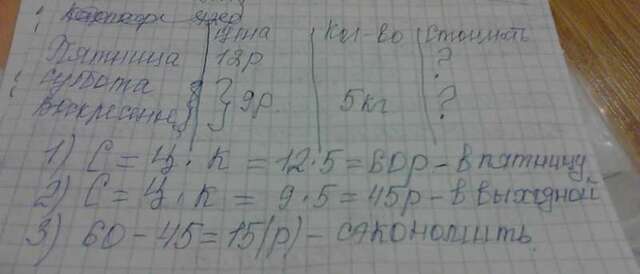 Цена Кол-во Стоимость
Пятница 12р ?
Суббота
Воскресенье } 9р. 5кг ?
1) С = Ц · К = 12·5=60р - в пятницу
2) С = Ц · К = 9·5=45р - в выходной
3) 60 - 45 = 15(р) - сэкономить.